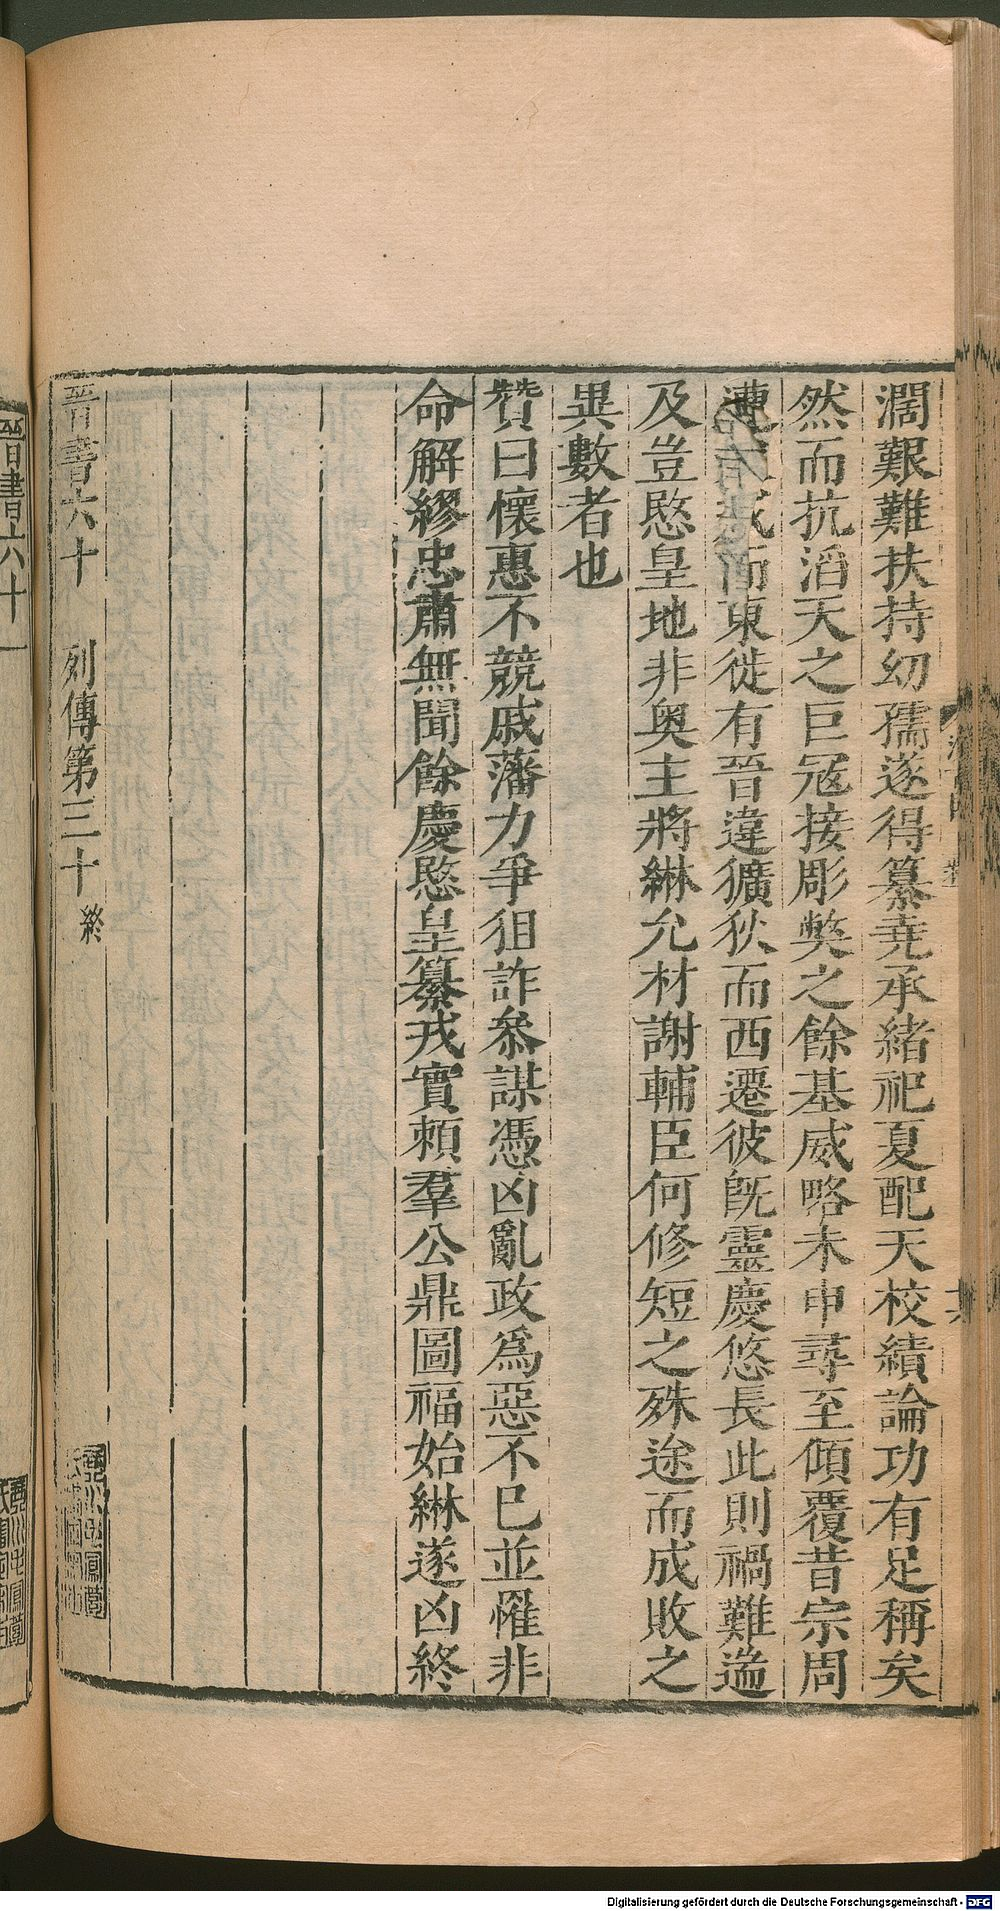 濶艱難扶持幼孺遂得纂堯承緒祀夏配天校績論功有足稱矣
然而抗滔天之巨寇接彫獘之餘基威略未申尋至傾覆昔宗周
遭犬戎而東徙有晉違獷狄而西遷彼旣靈慶悠長此則禍難遄
及豈愍皇地非奥主將綝允材謝輔臣何修短之殊途而成敗之
異數者也
贊曰懷惠不競戚藩力爭狙詐叅謀憑凶亂政爲惡不已並罹非
命解繆忠肅無聞餘慶愍皇纂戎實頼羣公鼎圖福始綝遂凶終
晉書六十 列傳第三十 終
晉書六十一
Digitalisierung gefördert durch die Deutsche Forschungsgemeinschaft - DFG